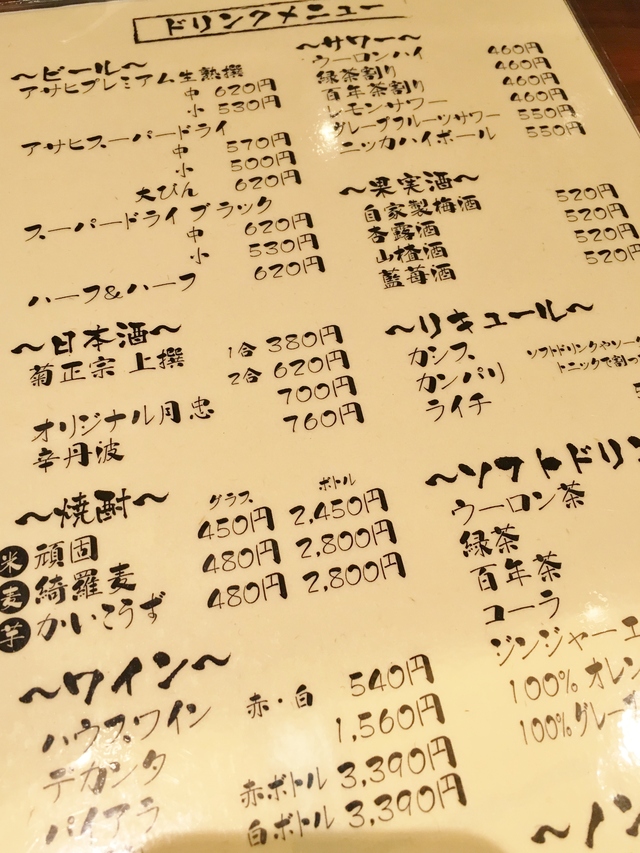 ドリンクメニュー
～ビール～
アサヒプレミアム生熟撰
中 620円
小 530円
アサヒスーパードライ
中 570円
小 500円
大びん 620円
スーパードライ ブラック
中 620円
小 530円
ハーフ&ハーフ 620円
～日本酒～
菊正宗 上撰 1合 380円
2合 620円
オリジナル月忠 700円
辛丹波 760円
～焼酎～
グラス ボトル
米 頑固 450円 2,450円
麦 綺羅麦 480円 2,800円
芋 かいこうず 480円 2,800円
～ワイン～
ハウスワイン 赤・白 540円
デカンタ 1,560円
バイアラ 赤ボトル 3,390円
白ボトル 3,390円
～サワー～
ウーロンハイ 460円
緑茶割り 460円
百年茶割り 460円
レモンサワー 460円
グレープフルーツサワー 550円
ニッカハイボール 550円
～果実酒～
自家製梅酒 520円
杏露酒 520円
山楂酒 520円
藍苺酒 520円
～リキュール～
カシス
カンパリ
ライチ
ソフトドリンクやソー
トニックで割っ
～ソフトドリン
ウーロン茶
緑茶
百年茶
コーラ
ジンジャーエ
100% オレン
100%グレー
～ノン